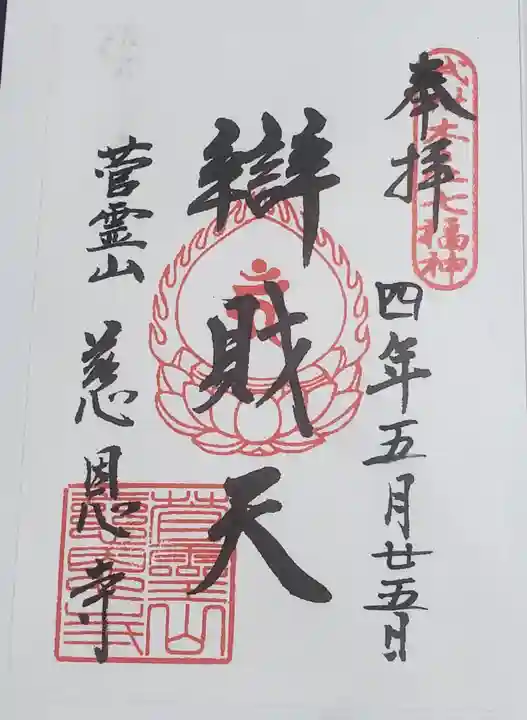 奉拝
四年五月廿五日
辯財天
菅霊山 慈恩寺
七福神
菅霊山
慈恩寺